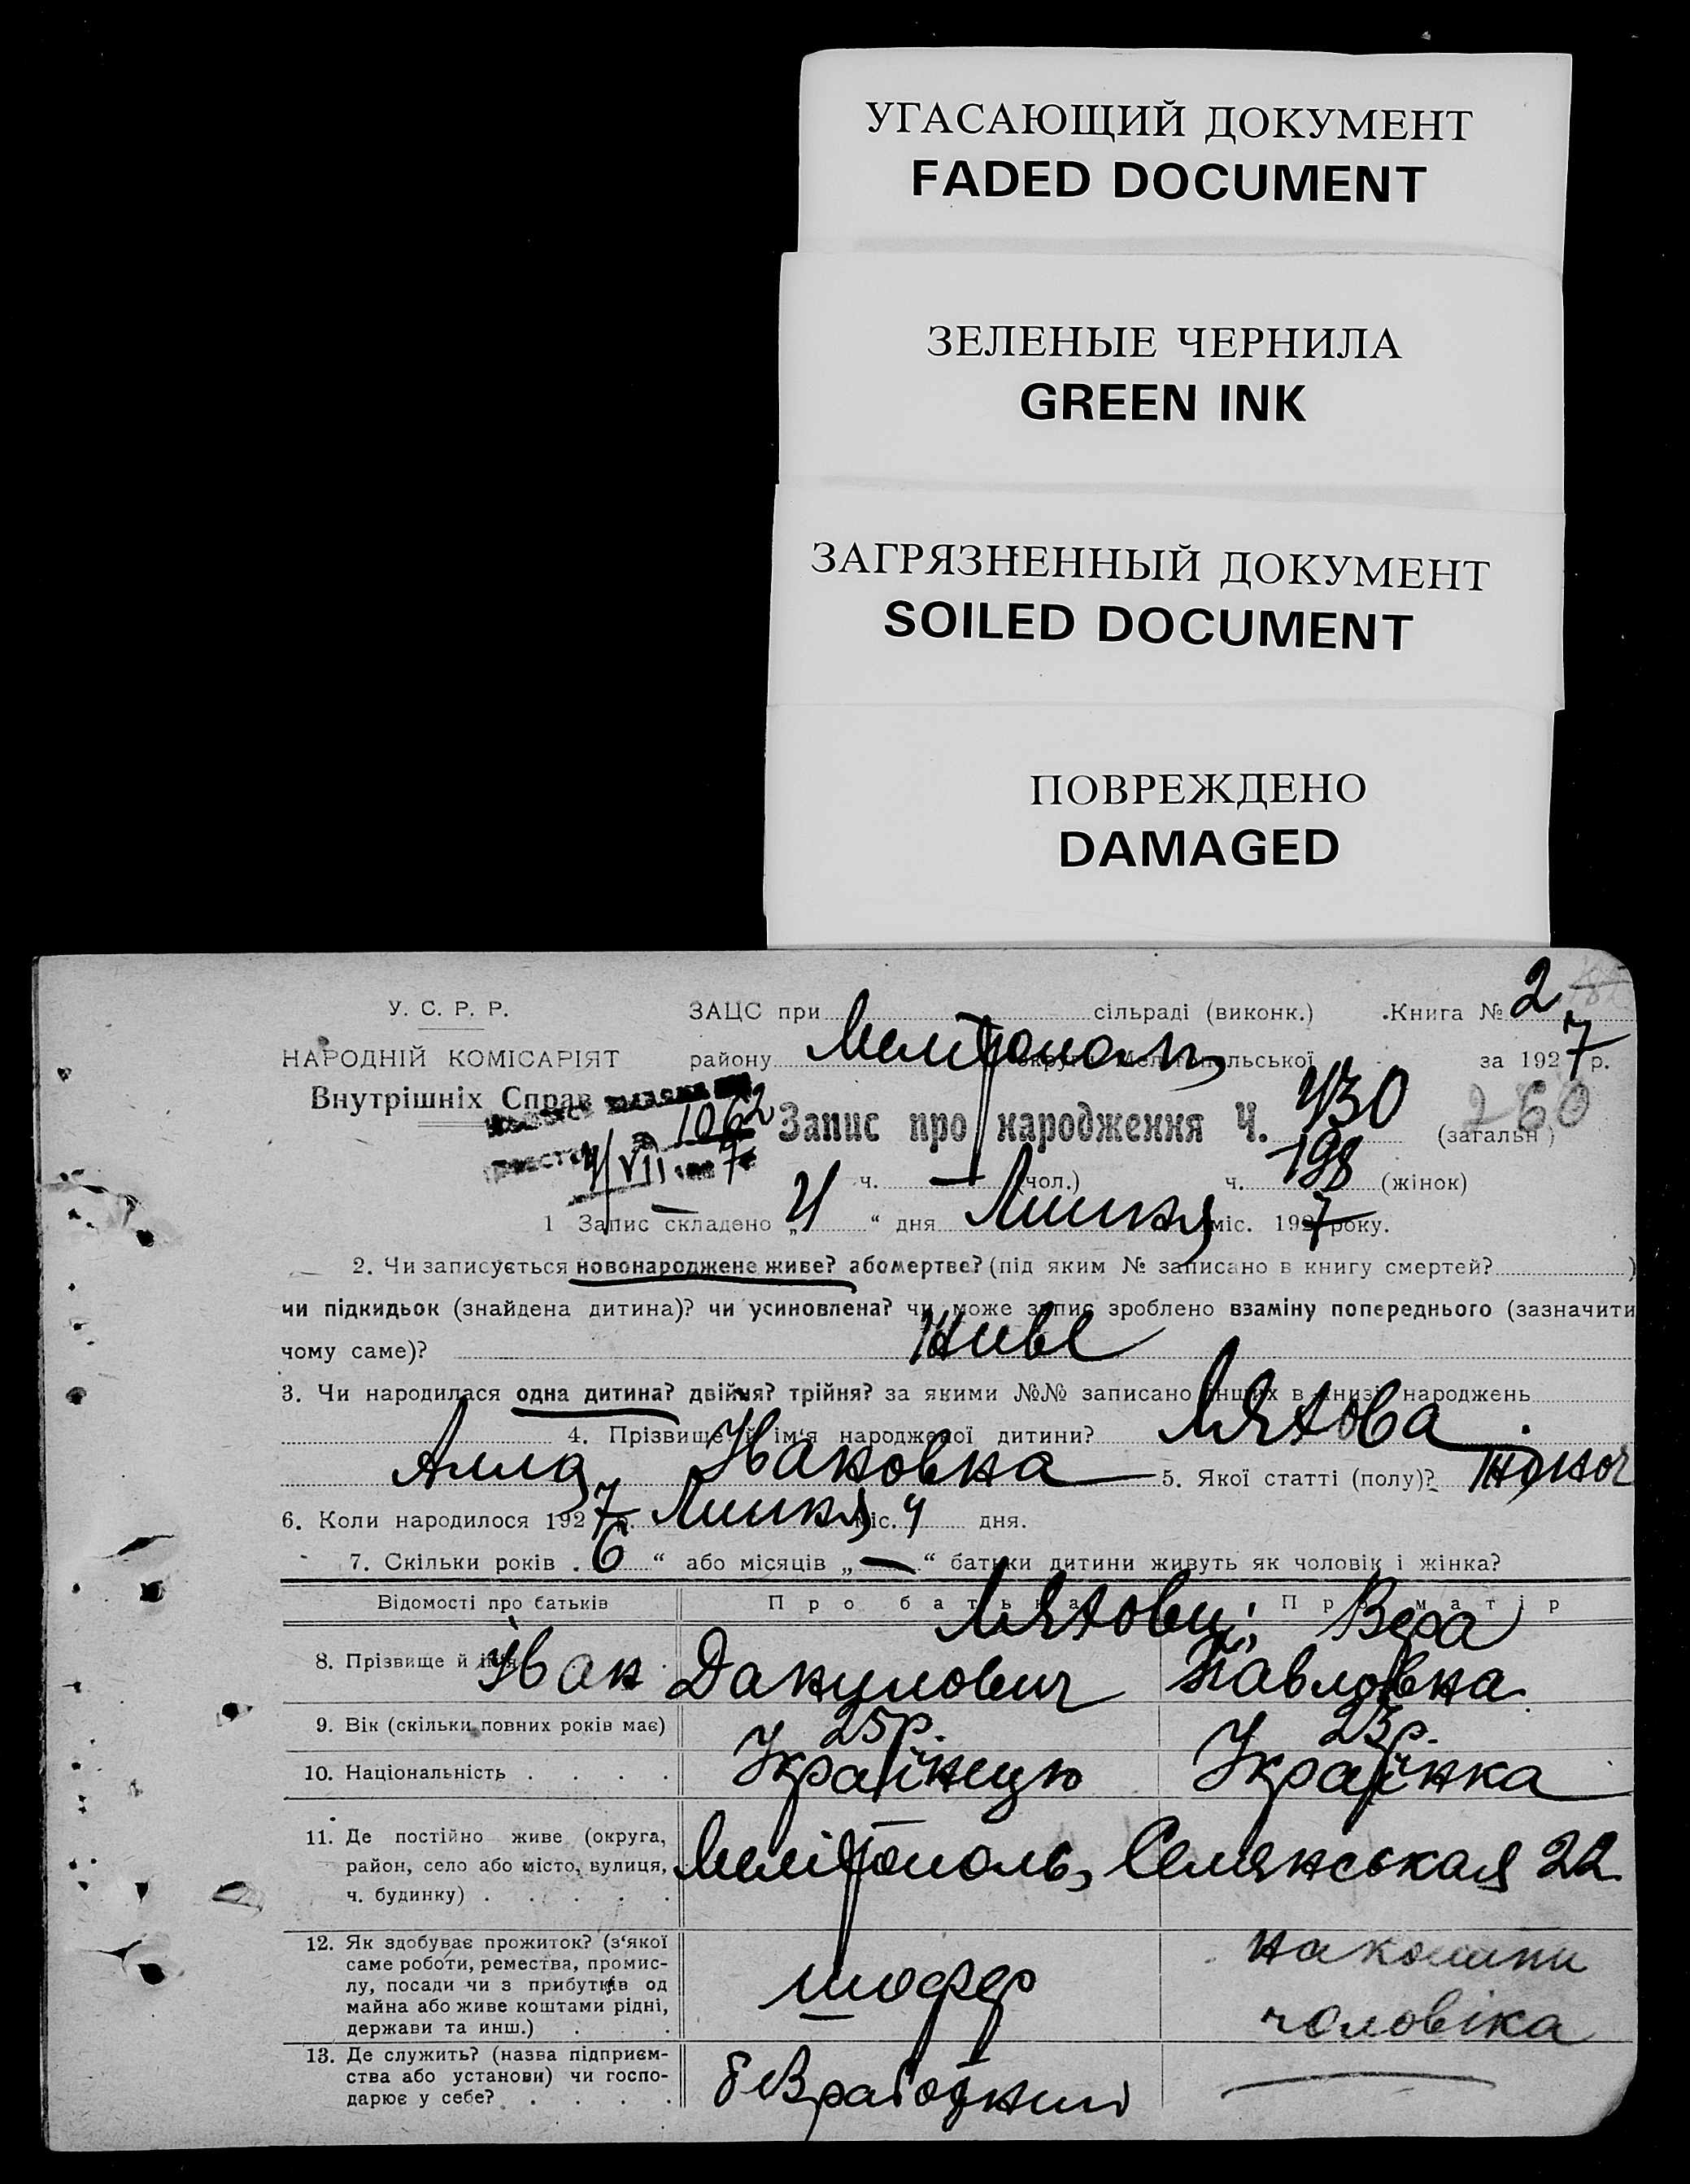 УГАСАЮЩИЙ ДОКУМЕНТ
FADED DOCUMENT
ЗЕЛЕНЫЕ ЧЕРНИЛА
GREEN INK
ЗАГРЯЗНЕННЫЙ ДОКУМЕНТ
SOILED DOCUMENT
ПОВРЕЖДЕНО
DAMAGED
У. С. Р. Р.
НАРОДНІЙ КОМІСАРІЯТ
Внутрішніх Справ
1062
4/VII 7
ЗАЦС при сільраді (виконк.) Книга № 2
району Мелітополь округи Мелітопольської за 1927 р.
Запис про народження Ч. 430 (загальн) 260
ч. — (чол.) ч. 198 (жінок)
1 Запис складено „4“ дня Липня міс. 1927 року.
2. Чи записується новонароджене живе? або мертве? (під яким № записано в книгу смертей? )
чи підкидьок (знайдена дитина)? чи усиновлена? чи може запис зроблено взаміну попереднього (зазначити
чому саме)? Живе
3. Чи народилася одна дитина? двійня? трійня? за якими №№ записано інших в книзі народжень
4. Прізвище й ім'я народженої дитини? Ляхова
Алла Івановна 5. Якої статті (полу)? жіноч
6. Коли народилося 1927 р. Липня міс. 4 дня.
7. Скільки років „6“ або місяців „—“ батьки дитини живуть як чоловік і жінка?
Відомості про батьків Про батька Про матір
Ляхови: Вера
8. Прізвище й ім'я Іван Данилович Павловна
9. Вік (скільки повних років має) 25 р. 23 р.
10. Національність Українець Українка
11. Де постійно живе (округа,
район, село або місто, вулиця, Мелітополь, Селянськая 22
ч. будинку)
12. Як здобуває прожиток? (з'якої
саме роботи, ремества, промис-
лу, посади чи з прибутків од
майна або живе коштами рідні,
держави та инш.) шофер на кошти чоловіка
13. Де служить? (назва підприєм-
ства або установи) чи госпо-
дарює у себе? безработний —